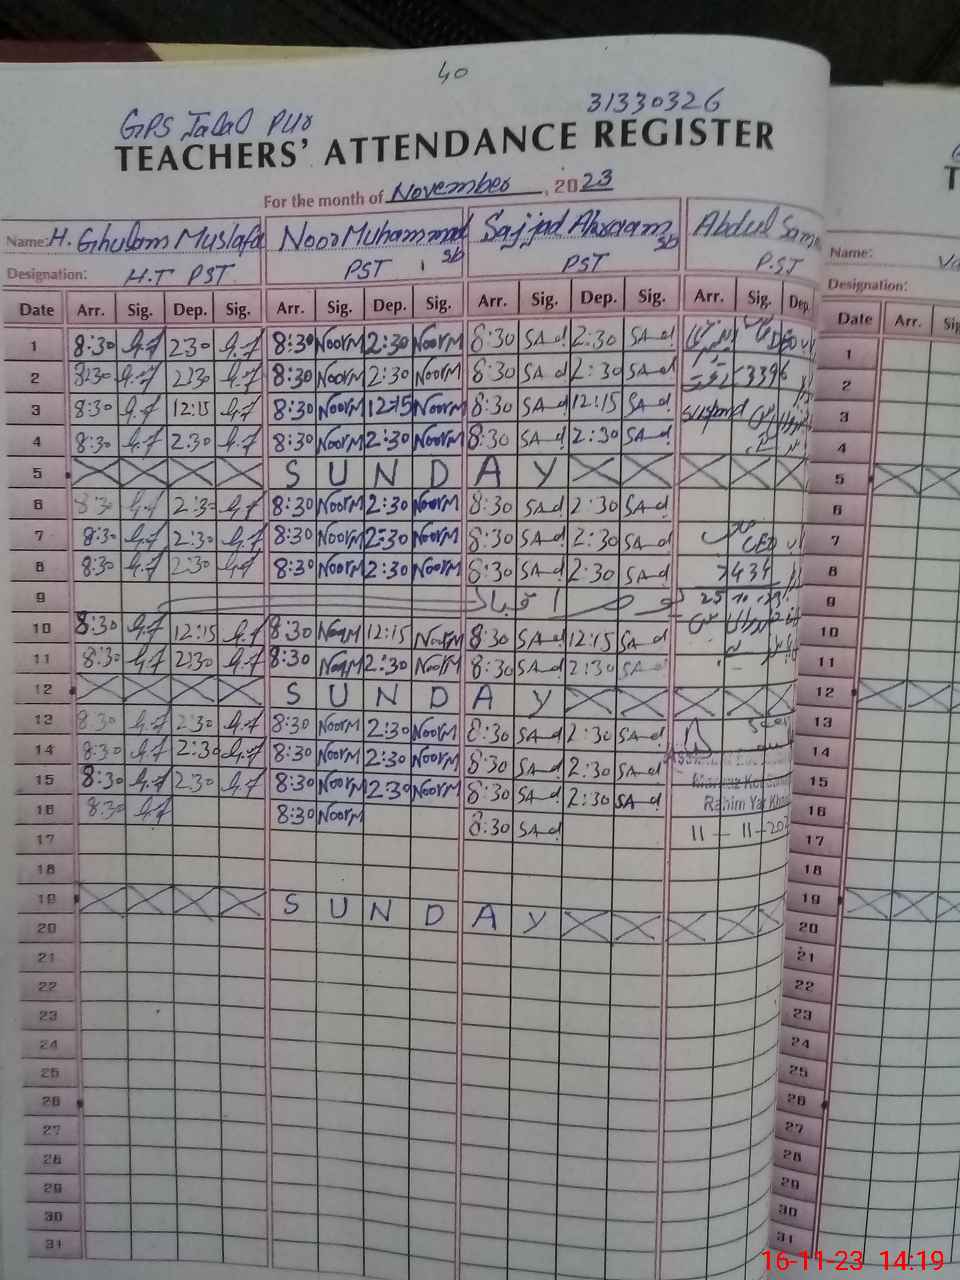 40
31330326
GPS Jalal Pur
TEACHERS' ATTENDANCE REGISTER
For the month of November, 2023
Name: H. Ghulam Mustafa Noor Muhammad Sajjad Ahsraam Abdul Sam
Designation: H.T PST PST PST P.ST
Date Arr. Sig. Dep. Sig. Arr. Sig. Dep. Sig. Arr. Sig. Dep. Sig. Arr. Sig. Dep.
1 8:30 2:30 8:30 NoorM 2:30 NoorM 8:30 SAd 2:30 SAd DEO
2 8:30 2:30 8:30 NoorM 2:30 NoorM 8:30 SAd 2:30 SAd 3396
3 8:30 12:15 8:30 NoorM 12:15 NoorM 8:30 SAd 12:15 SAd suspend
4 8:30 2:30 8:30 NoorM 2:30 NoorM 8:30 SAd 2:30 SAd
5 S U N D A Y
6 8:30 2:30 8:30 NoorM 2:30 NoorM 8:30 SAd 2:30 SAd
7 8:30 2:30 8:30 NoorM 2:30 NoorM 8:30 SAd 2:30 SAd CEO
8 8:30 2:30 8:30 NoorM 2:30 NoorM 8:30 SAd 2:30 SAd 7434
9 یوم اقبال
10 8:30 12:15 8:30 NoorM 12:15 NoorM 8:30 SAd 12:15 SAd
11 8:30 2:30 8:30 NoorM 2:30 NoorM 8:30 SAd 2:30 SAd
12 S U N D A Y
13 8:30 2:30 8:30 NoorM 2:30 NoorM 8:30 SAd 2:30 SAd
14 8:30 2:30 8:30 NoorM 2:30 NoorM 8:30 SAd 2:30 SAd
15 8:30 2:30 8:30 NoorM 2:30 NoorM 8:30 SAd 2:30 SAd
16 8:30 8:30 NoorM 8:30 SAd
Rahim Yar Khan
11-11-202
17
18
19 S U N D A Y
20
21
22
23
24
25
26
27
28
29
30
31
Name:
Designation:
Date Arr. Sig.
1
2
3
4
5
6
7
8
9
10
11
12
13
14
15
16
17
18
19
20
21
22
23
24
25
26
27
28
29
30
31
16-11-23 14:19